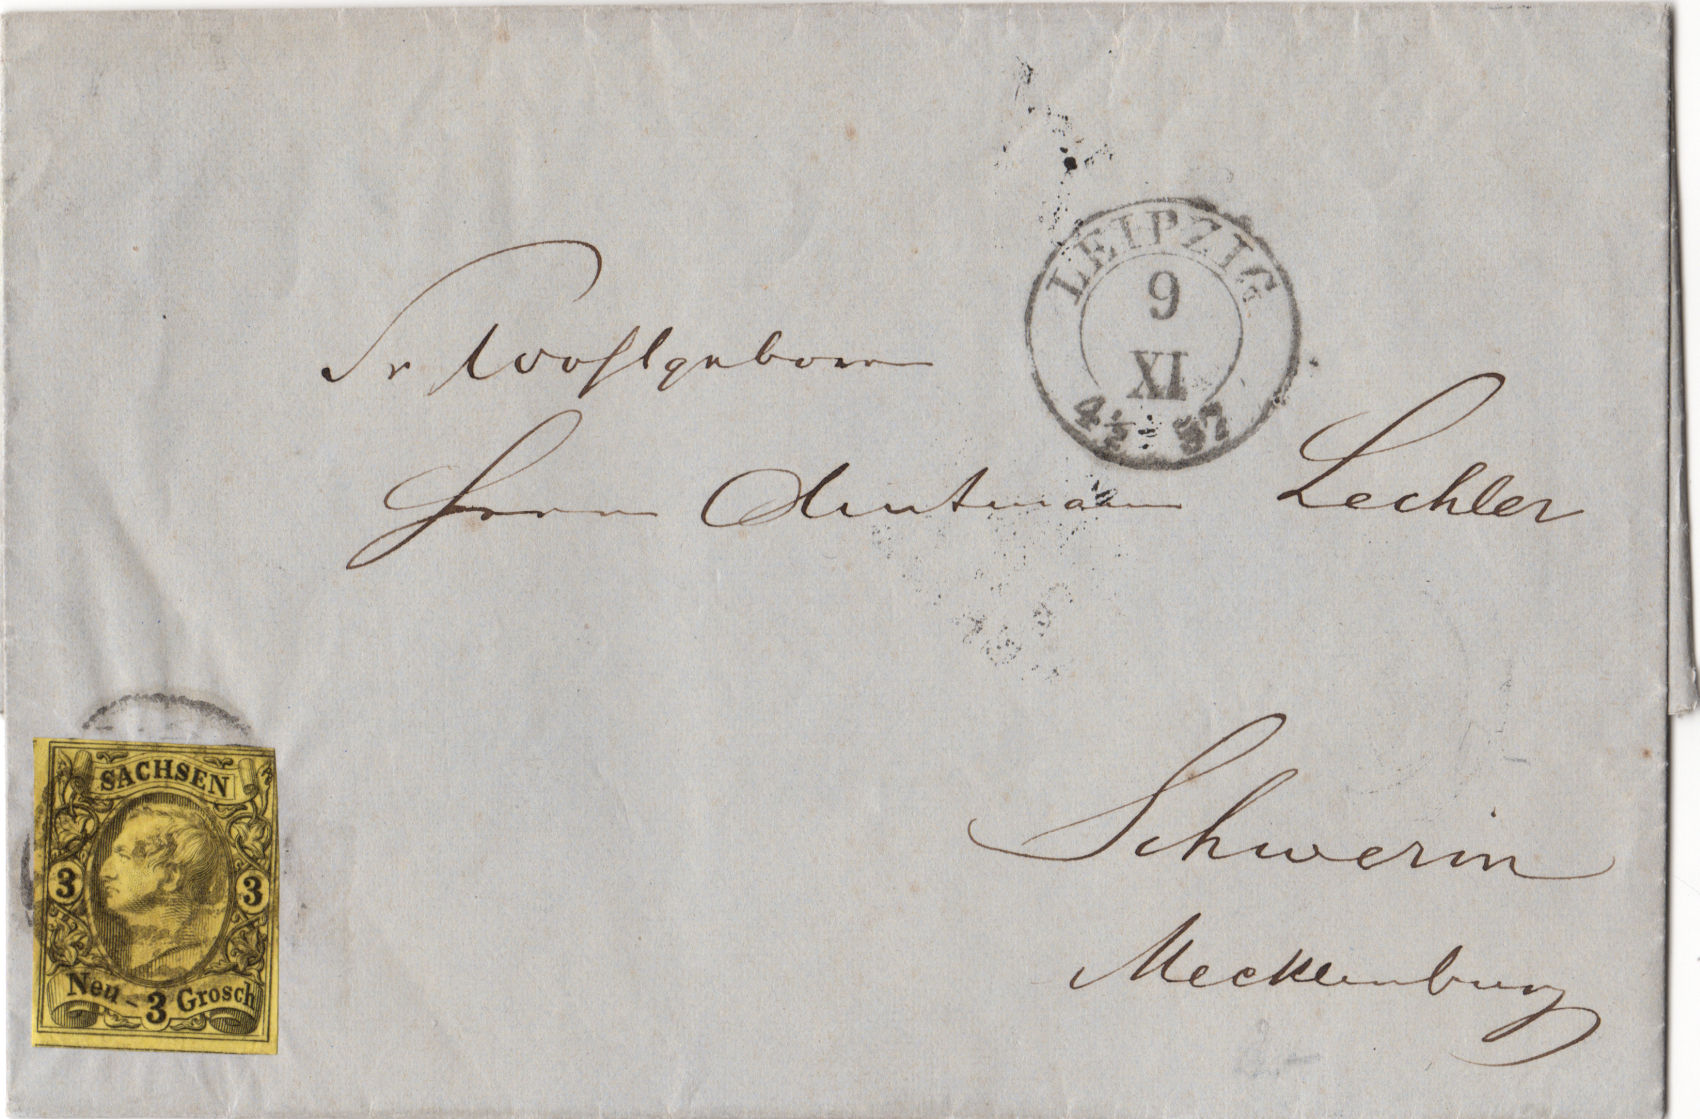 LEIPZIG
9
XI
4½ 57
Sr Wohlgeboren
Herrn Amtmann Lechler
Schwerin
Mecklenburg
SACHSEN
3 3
Neu - 3 Grosch